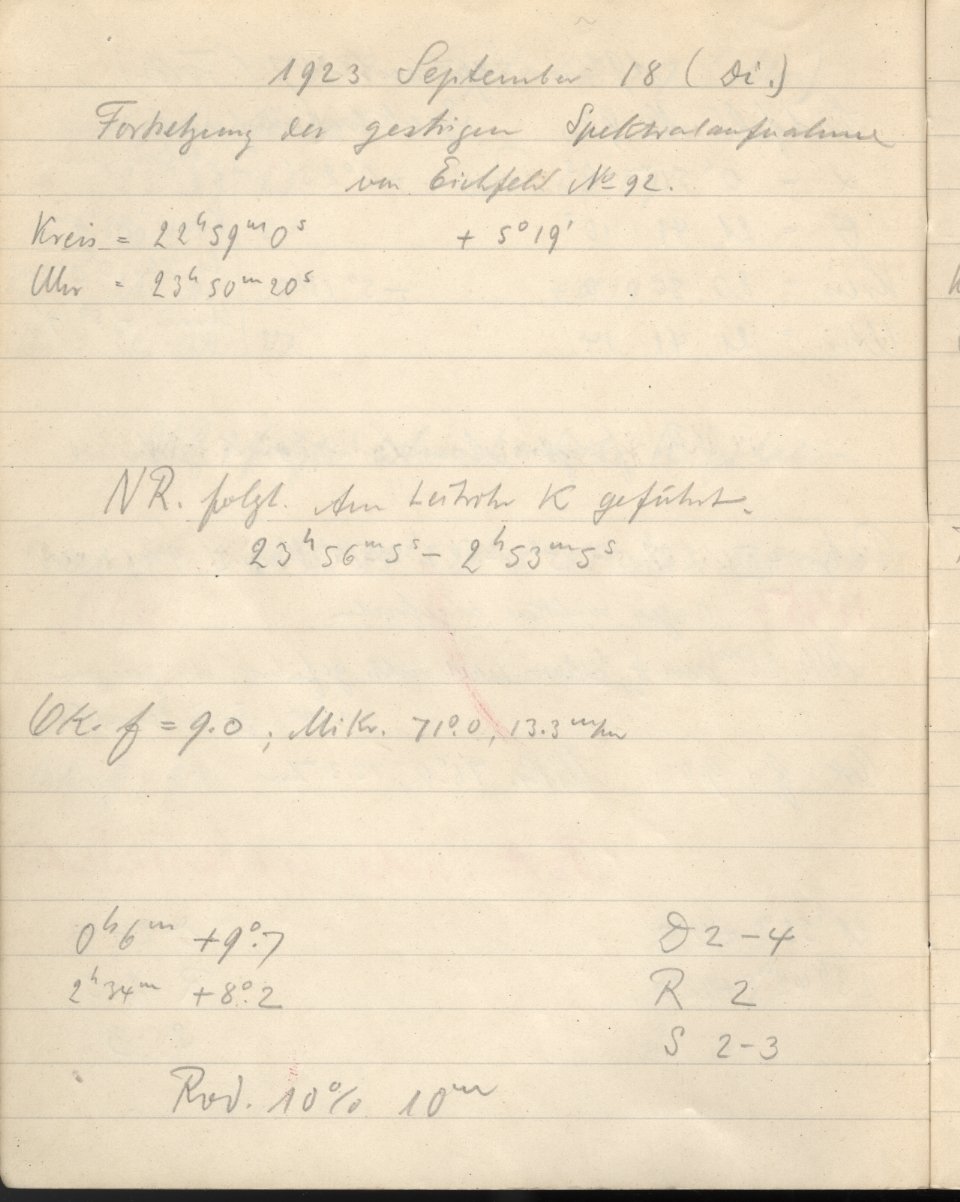 1923 September 18 (Di.)
Fortsetzung der gestrigen Spektralaufnahme
von Eichfeld No 92.
Kreis = 22h59m0s + 5°19'
Uhr = 23h50m20s
NR. folgt. Am Leitrohr K geführt.
23h56m5s – 2h53m5s
OK. f = 9.0 ; Mikr. 71°.0, 13.3 mm
0h6m +9°.7 D 2–4
2h34m +8°.2 R 2
S 2–3
Rod. 10% 10m